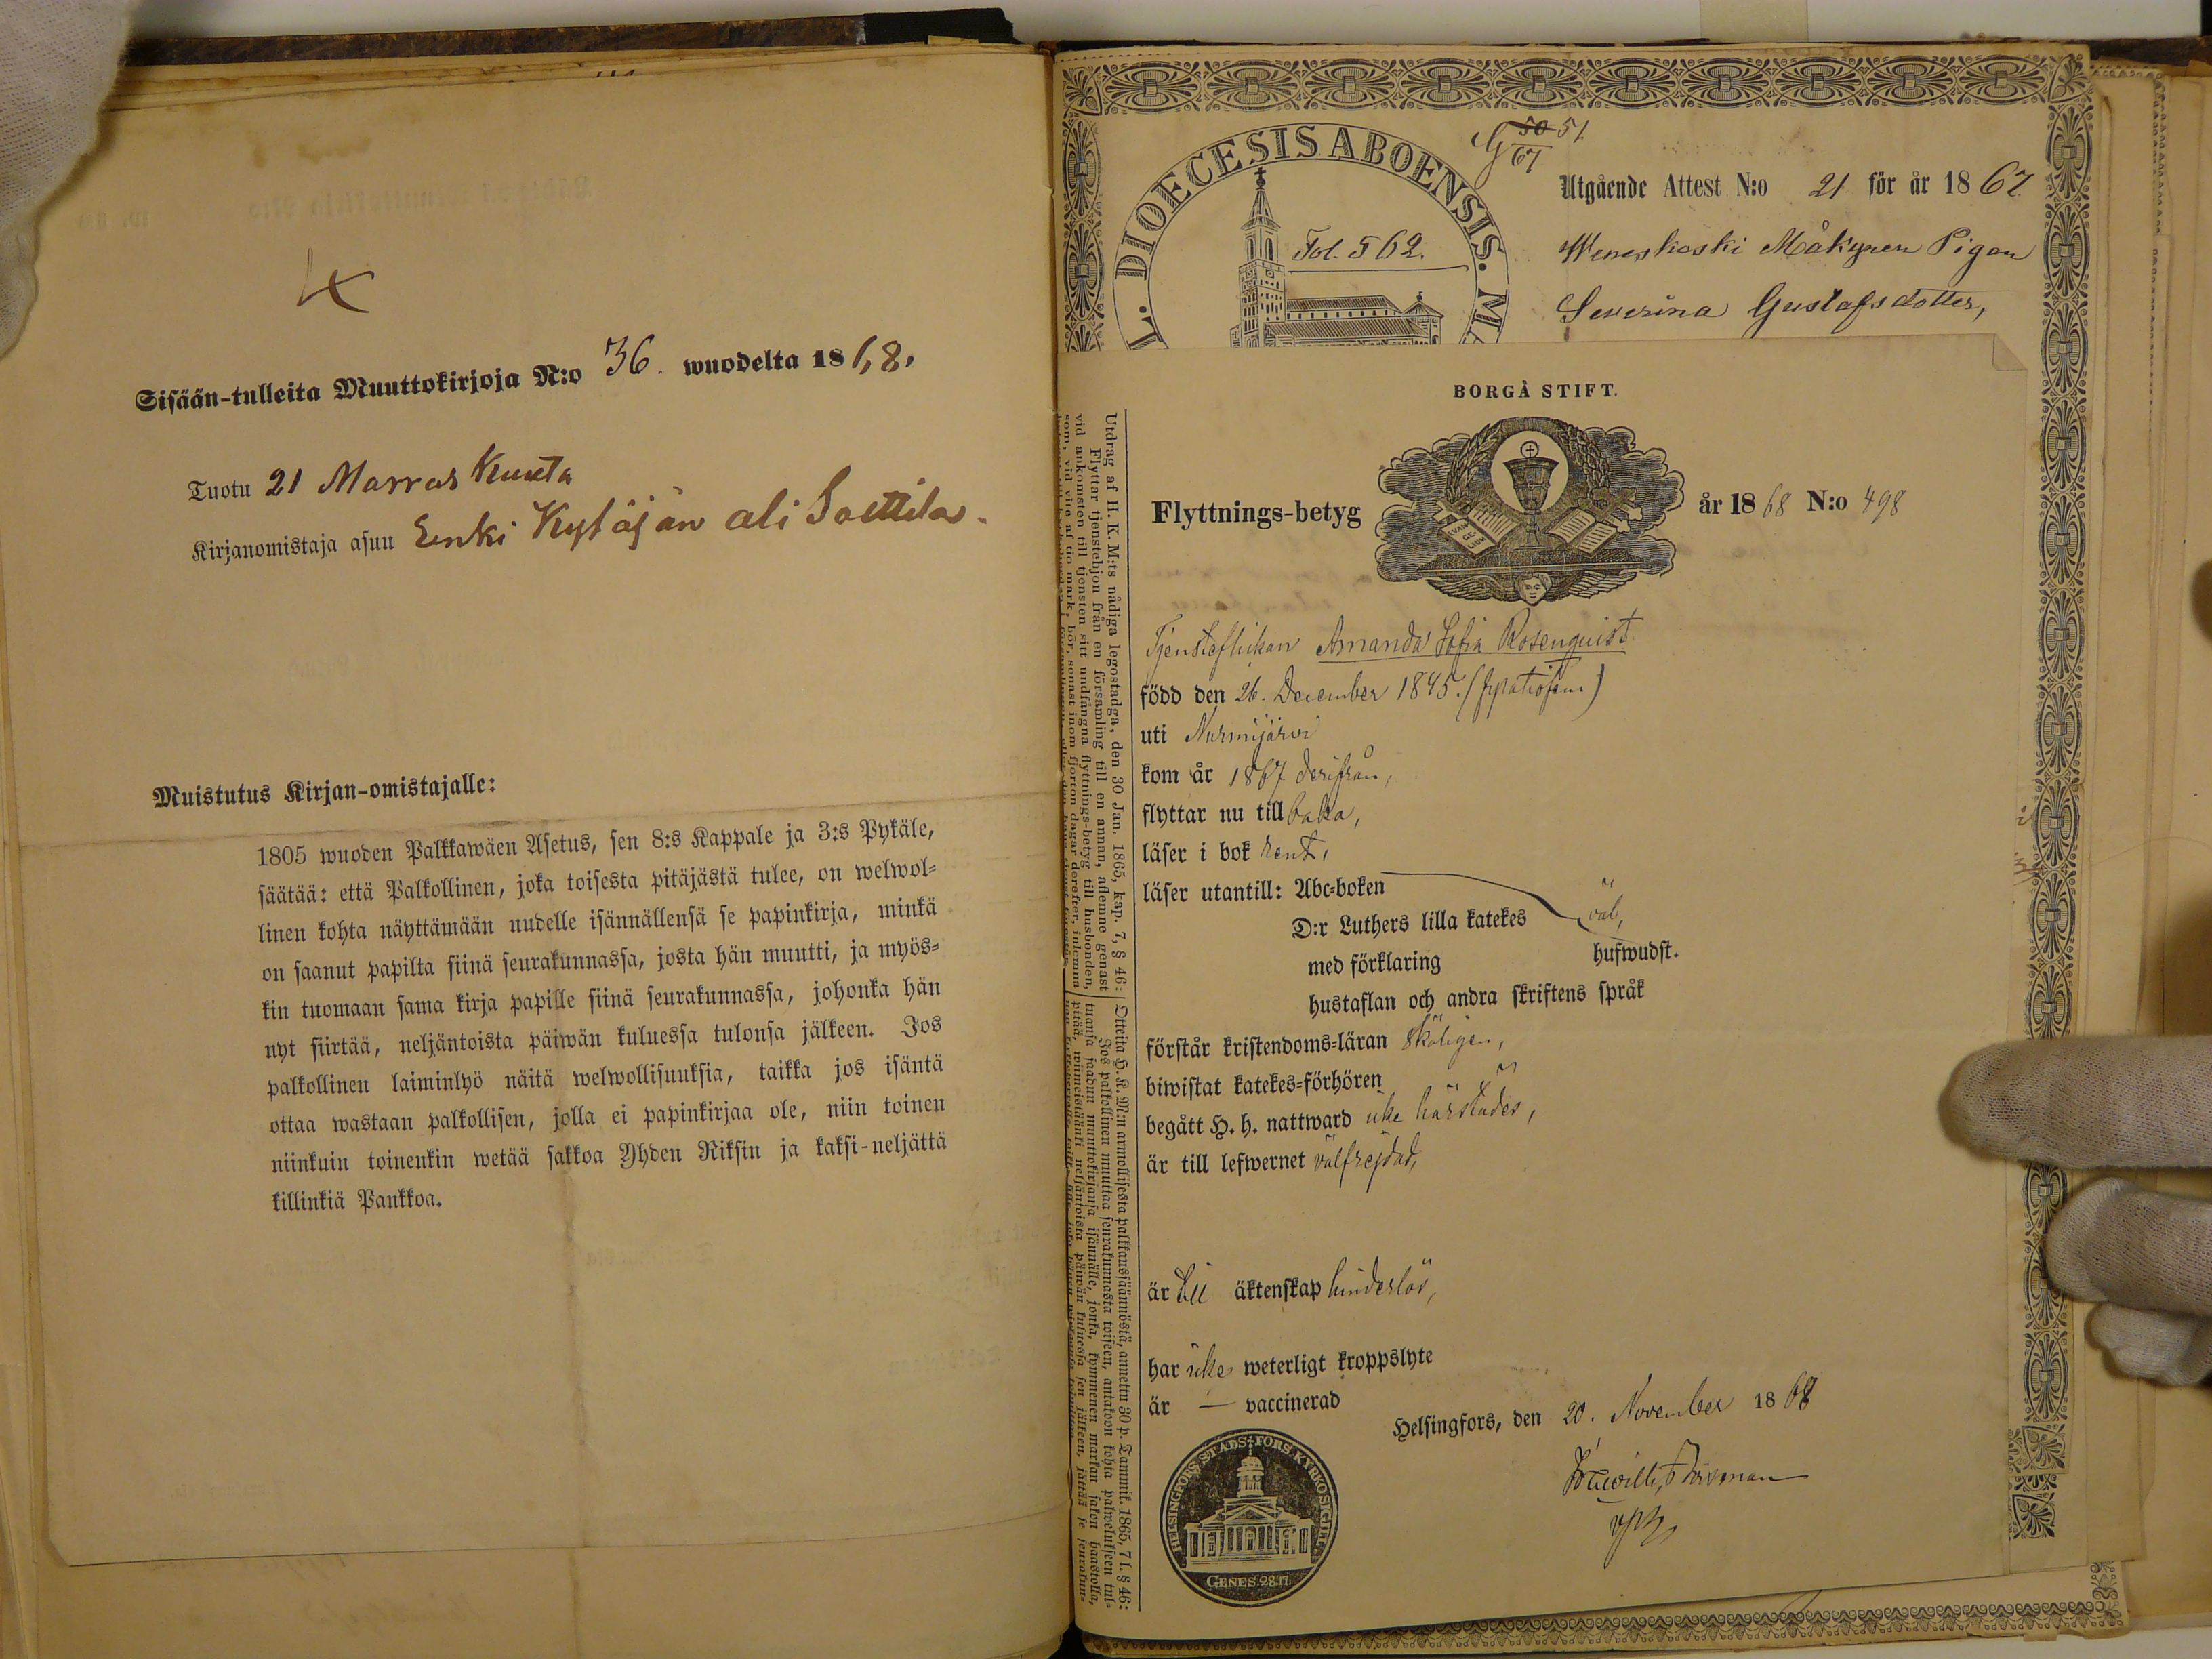 Sisään-tulleita Muuttokirjoja N:o 36. wuodelta 1868.
Tuotu 21 Marras Kuuta
Kirjanomistaja asuu Enki Kytäjän ali Soittila.
Muistutus Kirjan-omistajalle:
1805 wuoden Palkkawäen Asetus, sen 8:s Kappale ja 3:s Pykäle,
säätää: että Palkollinen, joka toisesta pitäjästä tulee, on welwol-
linen kohta näyttämään uudelle isännällensä se papinkirja, minkä
on saanut papilta siinä seurakunnassa, josta hän muutti, ja myös-
kin tuomaan sama kirja papille siinä seurakunnassa, johonka hän
nyt siirtää, neljäntoista päiwän kuluessa tulonsa jälkeen. Jos
palkollinen laiminlyö näitä welwollisuuksia, taikka jos isäntä
ottaa wastaan palkollisen, jolla ei papinkirjaa ole, niin toinen
niinkuin toinenkin wetää sakkoa Yhden Riksin ja kaksi-neljättä
killinkiä Pankkoa.
L. DIOECESIS ABOENSIS. MA
Fol. 562.
50 51
67
Utgående Attest N:o 21 för år 1867
Pigan
Severina Gustafsdotter,
BORGÅ STIFT.
EVAN GE LIUM
Flyttnings-betyg år 1868 N:o 498
Tjensteflickan Amanda Sofia Rosenquist
född den 26. December 1845. (fyratiofem)
uti Nurmijärvi
kom år 1867 derifrån,
flyttar nu till baka,
läser i bok rent,
läser utantill: Abc-boken
D:r Luthers lilla katekes väl,
med förklaring hufwudst.
hustaflan och andra skriftens språk
förstår kristendoms-läran skäligen,
biwistat katekes-förhören
begått H. h. nattward icke härstädes,
är till lefwernet välfrejdad,
är till äktenskap hinderlös,
har icke weterligt kroppslyte
är — vaccinerad
Helsingfors, den 20. November 1868
HELSINGFORS STADS FÖRS. KYRKOSIGILL
GENES. 28.17.
Utdrag af H. K. M:ts nådiga legostadga, den 30 Jan. 1865, kap. 7, § 46:
Flyttar tjenstehjon från en församling till en annan, aflemne genast
vid ankomsten till tjensten sitt undfångna flyttnings-betyg till husbonden,
som, vid vite af tio mark, bör, senast inom fjorton dagar derefter, inlemna
Otteita H. K. M:n armollisesta palkkaussäännöstä, annettu 30 p. Tammik. 1865, 7 l. § 46:
Jos palkollinen muuttaa seurakunnasta toiseen, antakoon kohta palwelukseen tul-
tuansa saadun muuttokirjansa isännälle, jonka, kymmenen markan sakon haastolla,
pitää, wiimeistäänki neljäntoista päiwän kuluessa sen jälkeen, jättää se seurakun-